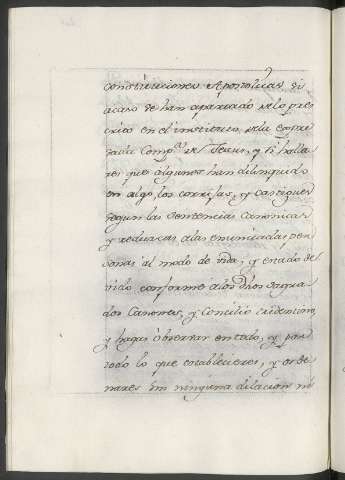 constituciones Apostolicas si
acaso se han apartado de lo pres
crito en el instituto de la expre
zada Comp.ª de Jesus, y si halla
res que algunos han delinquido
en algo, los corrijas, y castigues
segun las Sentencias Canonicas
y reduzcas a las enunciadas per
sonas al modo de vida, y estado de
vido conforme a los dhos sagra
dos Canones, y Concilio tridentino,
y hagas observar en todo, y por
todo lo que establecieres, y orde
nares sin ninguna dilacion ni